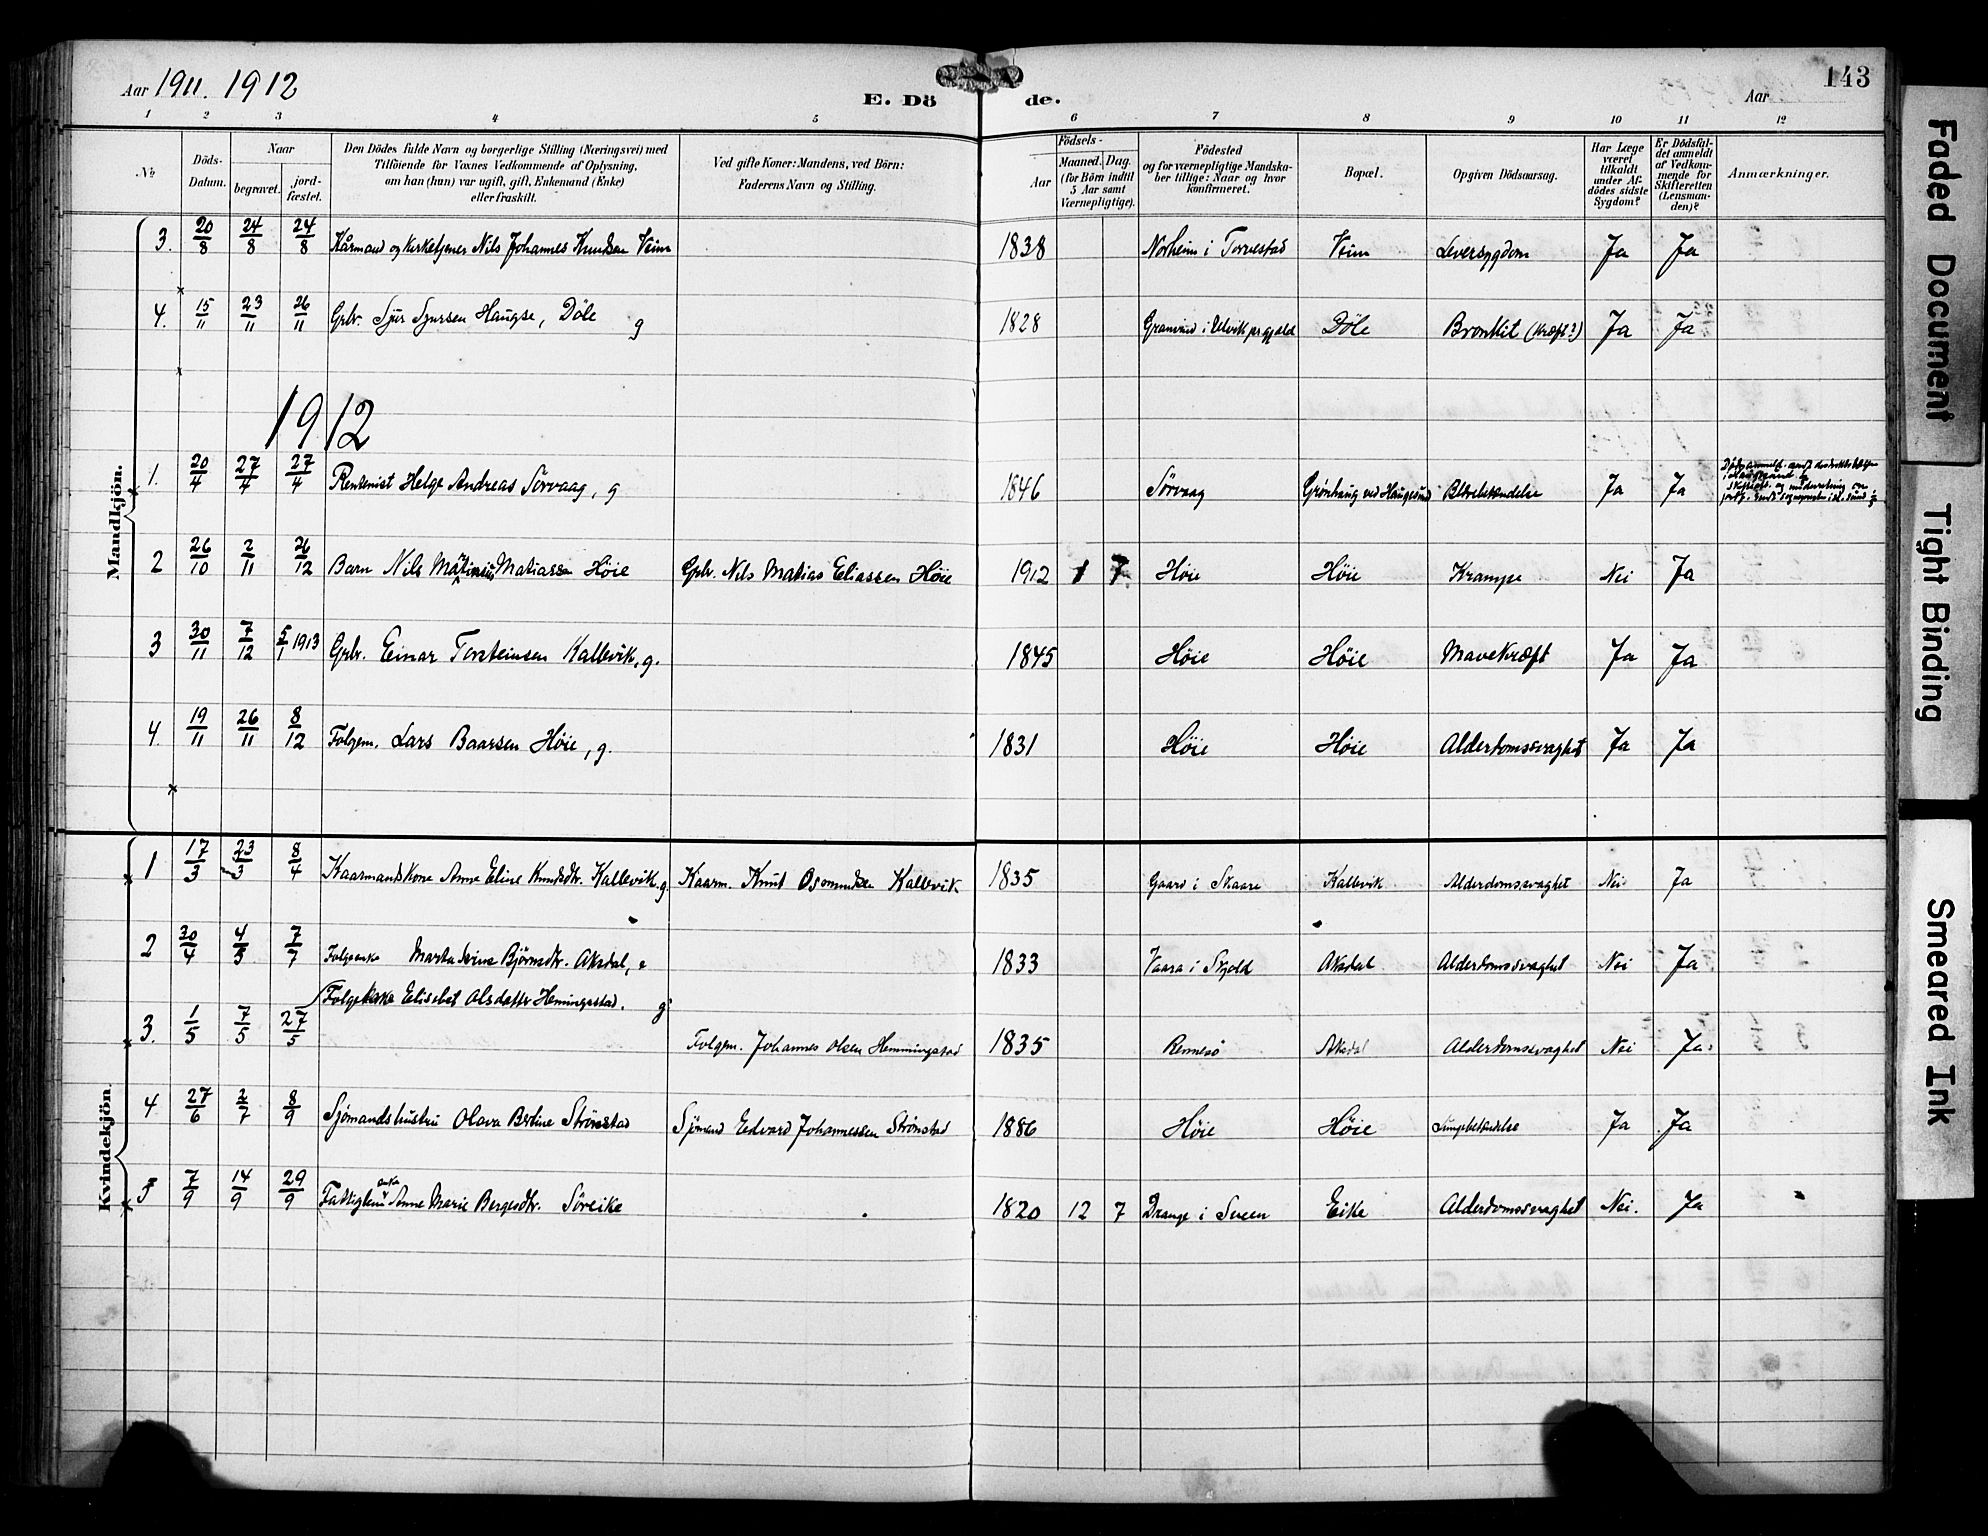 Aar 1911. 1912
E. Dö de.
Aar
143
1 2 3 4 5 6 7 8 9 10 11 12
№
Döds-Datum.
Naar
begravet.
jord-fæstet.
Den Dödes fulde Navn og borgerlige Stilling (Næringsvei) med
Tilföiende for Voxnes Vedkommende af Oplysning,
om han (hun) var ugift, gift, Enkemand (Enke)
eller fraskilt.
Ved gifte Koner: Mandens, ved Börn:
Faderens Navn og Stilling.
Födsels-
Aar
Maaned. Dag.
(for Börn indtil
5 Aar samt
Værnepligtige).
Födested
og for værnepligtige Mandska-
ber tillige: Naar og hvor
konfirmeret.
Bopæl.
Opgiven Dödsaarsag.
Har Læge
været
tilkaldt
under Af-
dödes sidste
Sygdom?
Er Dödsfal-
det anmeldt
af Vedkom-
mende for
Skifteretten
(Lensman-
den)?
Anmærkninger.
Mandkjön.
3. 20/8 24/8 24/8 Kårmand og Kirketjener Nils Johannes Knudsen Veim 1838 Norheim i Torvestad Veim Leversygdom Ja Ja
4. 15/11 23/11 26/11 Gbr. Sjur Sjursen Haugse, Döle g 1828 Granvind i Ulvik prgjeld Döle Bronkit (kræft?) Ja Ja
1912
1. 20/4 27/4 27/4 Rentenist Helge Andreas Sørvaag, g 1846 Sørvaag Grønhaug ved Haugesund Ja Ja
2 26/10 2/11 26/12 Barn Nils Martinius Matiassen Höie Gbr. Nils Matias Eliassen Höie 1912 1 7 Höie Höie Krampe Nei Ja
3 30/11 7/12 5/1 1913 Gbr. Einar Torsteinsen Kallevik, g. 1845 Höie Höie Mavekræft Ja Ja
4. 19/11 26/11 8/12 Folgem. Lars Baarsen Höie, g. 1831 Höie Höie Alderdomssvaghet Ja Ja
Kvindekjön.
1 17/3 23/3 8/4 Kaarmandskone Anne Eline Knudsdtr. Kallevik. g. Kaarm. Knut Osmundsen Kallevik 1835 Gaard i Skaare Kallevik Alderdomssvaghet Nei Ja
2 30/4 4/5 7/7 Folgeenke Marta Serine Bjørnsdtr. Aksdal, e 1833 Vaara i Skjold Aksdal Alderdomssvaghet Nei Ja
3. 1/5 7/5 27/5 Folgekone Elisebet Olsdatter Hemingsstad. g Folgem. Johannes Olsen Hemmingstad 1835 Rennesö Aksdal Alderdomssvaghet Nei Ja
4 27/6 2/7 8/9 Sjömandshustru Olava Bertine Strönstad Sjömand Edvard Johannessen Strönstad 1886 Höie Höie Lungebetændelse Ja Ja
5 7/9 14/9 29/9 Fattiglem enke Anne Marie Bergesdtr. Söreike 1820 12 7 Drange i Sveen Eike Alderdomssvaghet Nei. Ja
Faded Document
Tight Binding
Smeared Ink